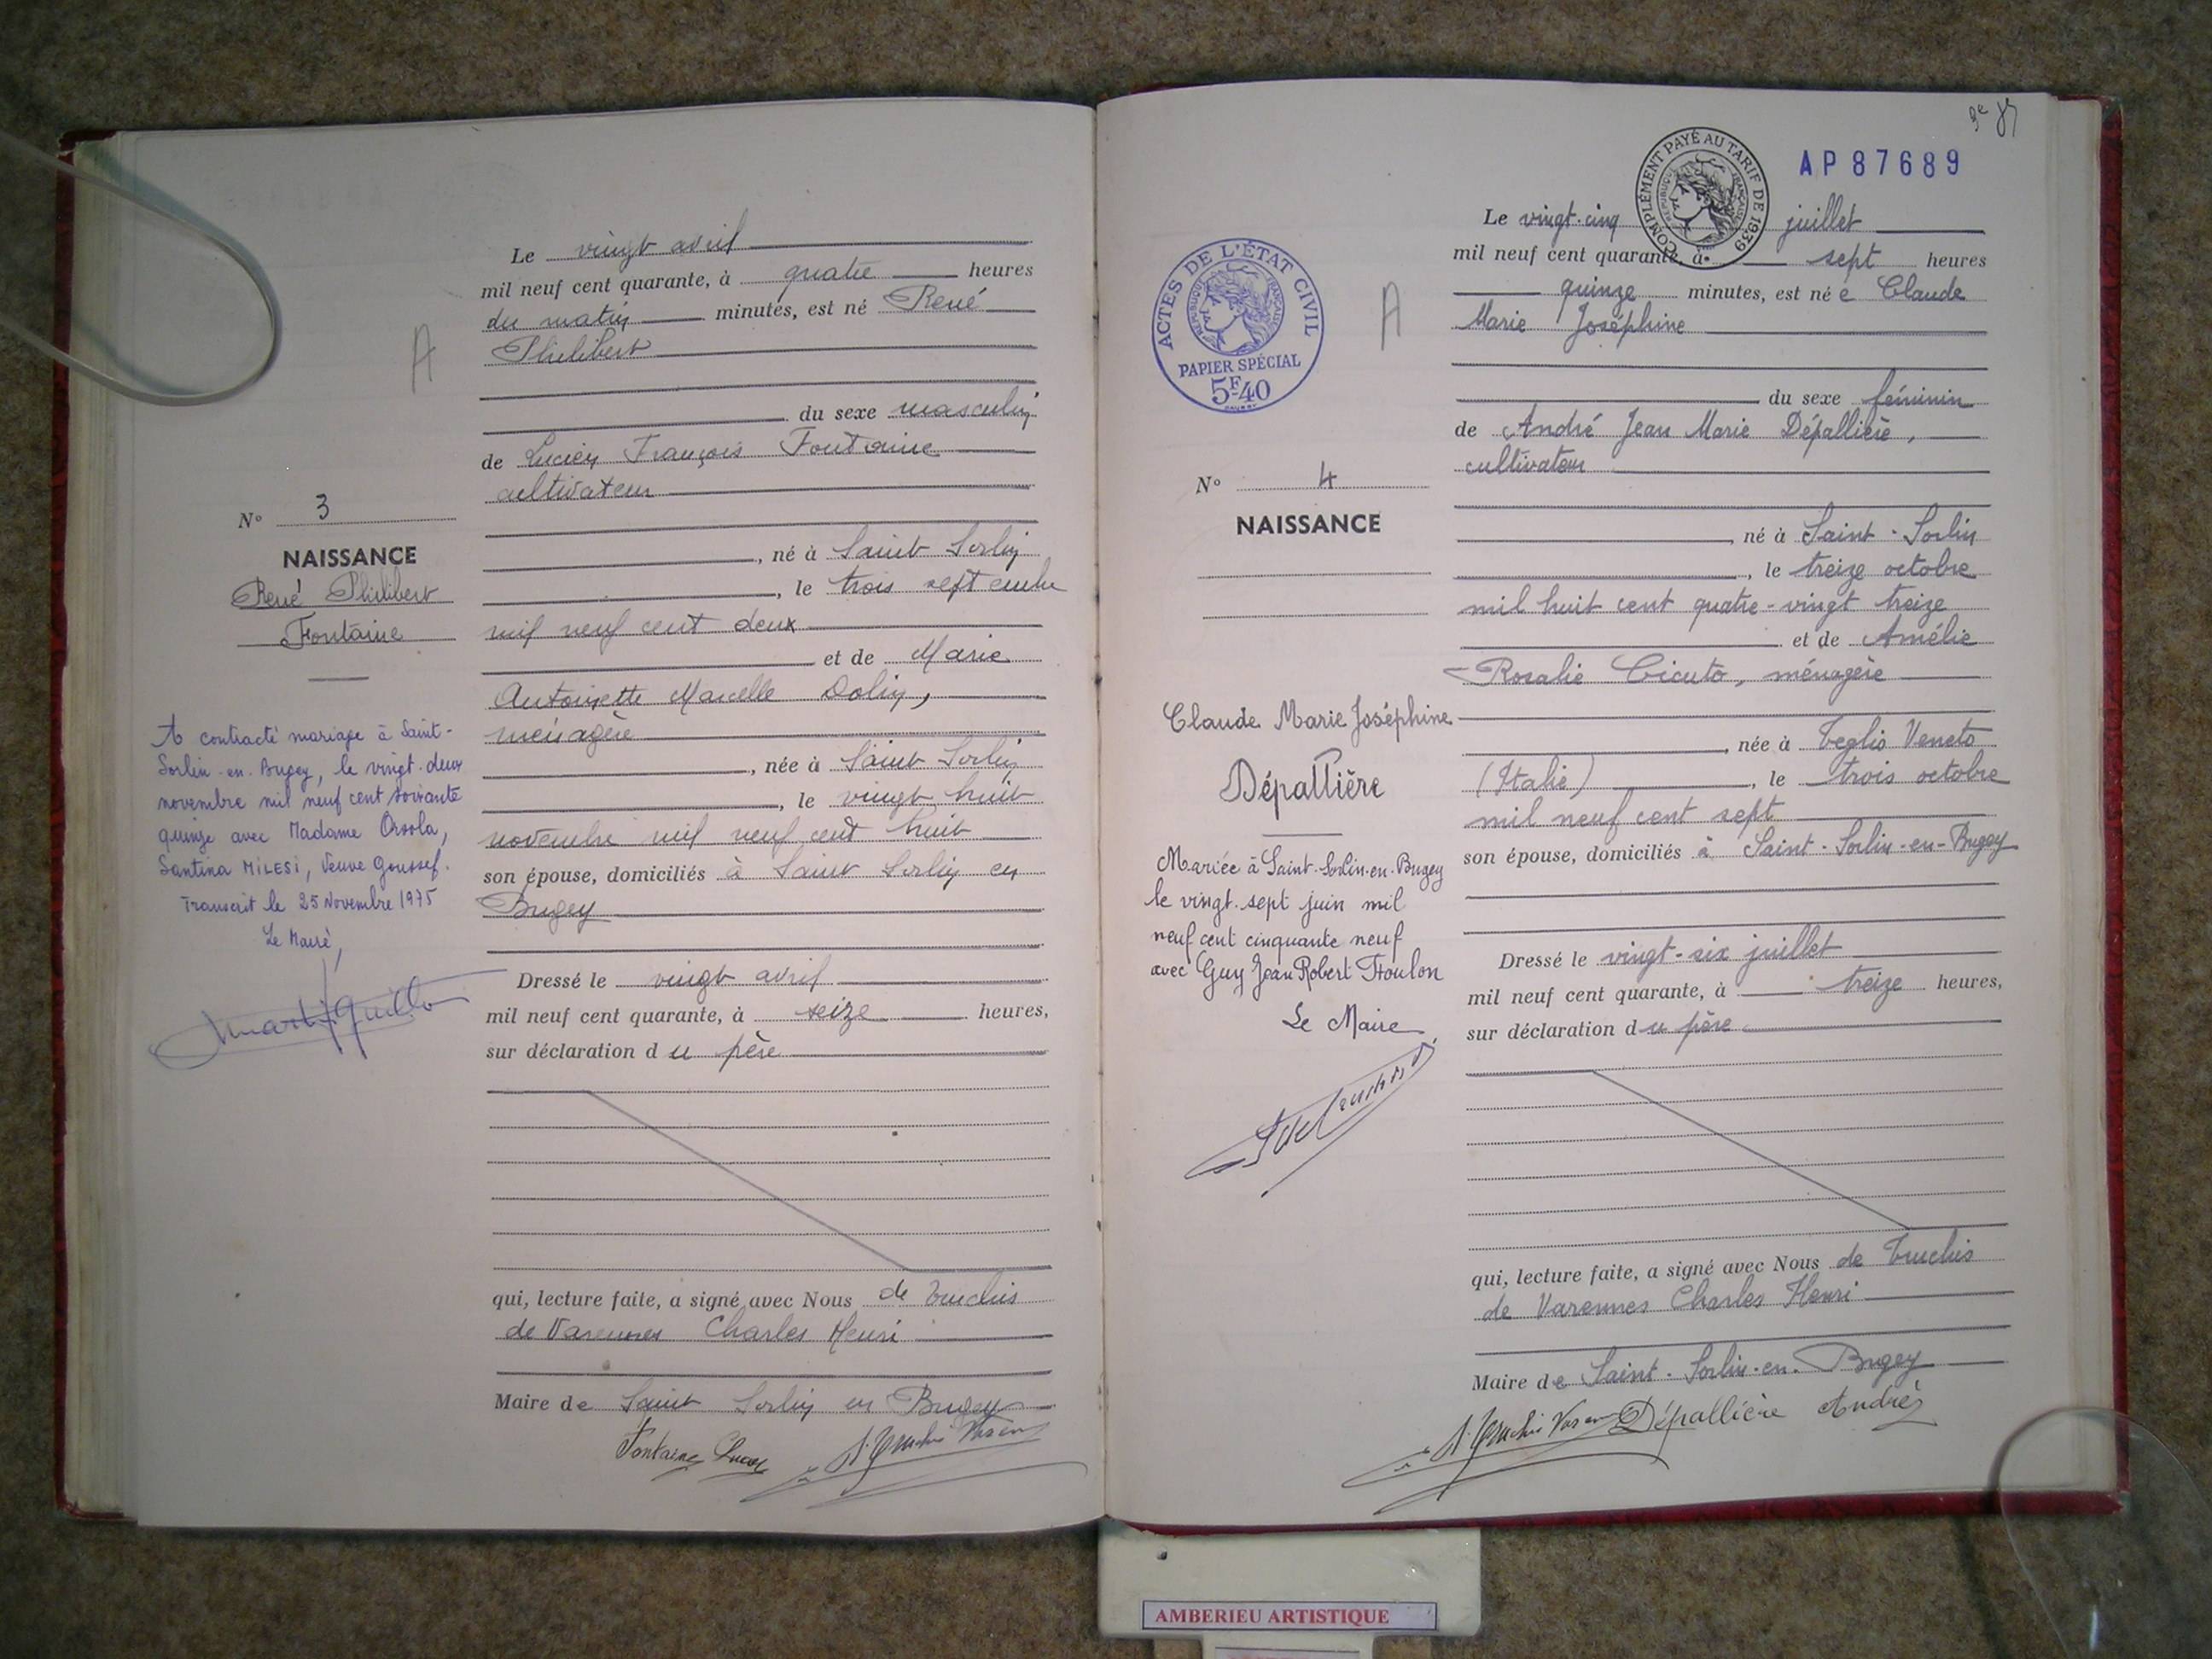 Le vingt avril
mil neuf cent quarante, à quatre heures
du matin minutes, est né René
Philibert
du sexe masculin
de Lucien François Fontaine
cultivateur
, né à Saint Sorlin
, le trois septembre
mil neuf cent deux
et de Marie
Antoinette Marcelle Dolin,
ménagère
, née à Saint Sorlin
, le vingt huit
novembre mil neuf cent huit
son épouse, domiciliés à Saint Sorlin en
Bugey
Dressé le vingt avril
mil neuf cent quarante, à seize heures,
sur déclaration du père
qui, lecture faite, a signé avec Nous de Truchis
de Varennes Charles Henri
Maire de Saint Sorlin en Bugey
Fontaine
A
N° 3
NAISSANCE
René Philibert
Fontaine
A contracté mariage à Saint-
Sorlin-en-Bugey, le vingt-deux
novembre mil neuf cent soixante
quinze avec Madame Orsola,
Santina MILESI, Veuve Goussef.
Transcrit le 25 Novembre 1975
Le Maire,
AP87689
COMPLÉMENT PAYÉ AU TARIF DE 1939
RÉPUBLIQUE FRANÇAISE
Le vingt-cinq juillet
mil neuf cent quarante, à sept heures
quinze minutes, est née Claude
Marie Joséphine
du sexe féminin
de André Jean Marie Dépallière,
cultivateur
, né à Saint-Sorlin
, le treize octobre
mil huit cent quatre-vingt treize
et de Amélie
Rosalie Cicuto, ménagère
, née à Teglio Veneto
(Italie), le trois octobre
mil neuf cent sept
son épouse, domiciliés à Saint-Sorlin-en-Bugey
Dressé le vingt-six juillet
mil neuf cent quarante, à treize heures,
sur déclaration du père
qui, lecture faite, a signé avec Nous de Truchis
de Varennes Charles Henri
Maire de Saint-Sorlin-en-Bugey
Dépallière André
ACTES DE L'ÉTAT CIVIL
RÉPUBLIQUE FRANÇAISE
PAPIER SPÉCIAL
5F40
A
N° 4
NAISSANCE
Claude Marie Joséphine
Dépallière
Mariée à Saint-Sorlin-en-Bugey
le vingt-sept juin mil
neuf cent cinquante neuf
avec Guy Jean Robert Troulon
Le Maire
AMBERIEU ARTISTIQUE